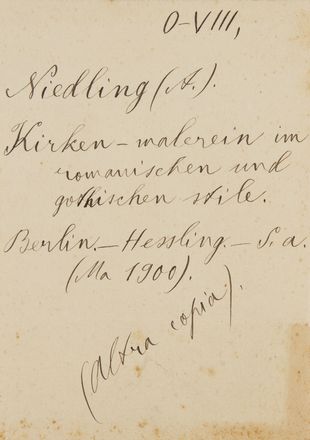 O-VIII,
Niedling (A.).
Kirken-malerein im
romanischen und
gothischen stile.
Berlin.-Hessling.-S. a.
(Ma 1900).
(altra copia).